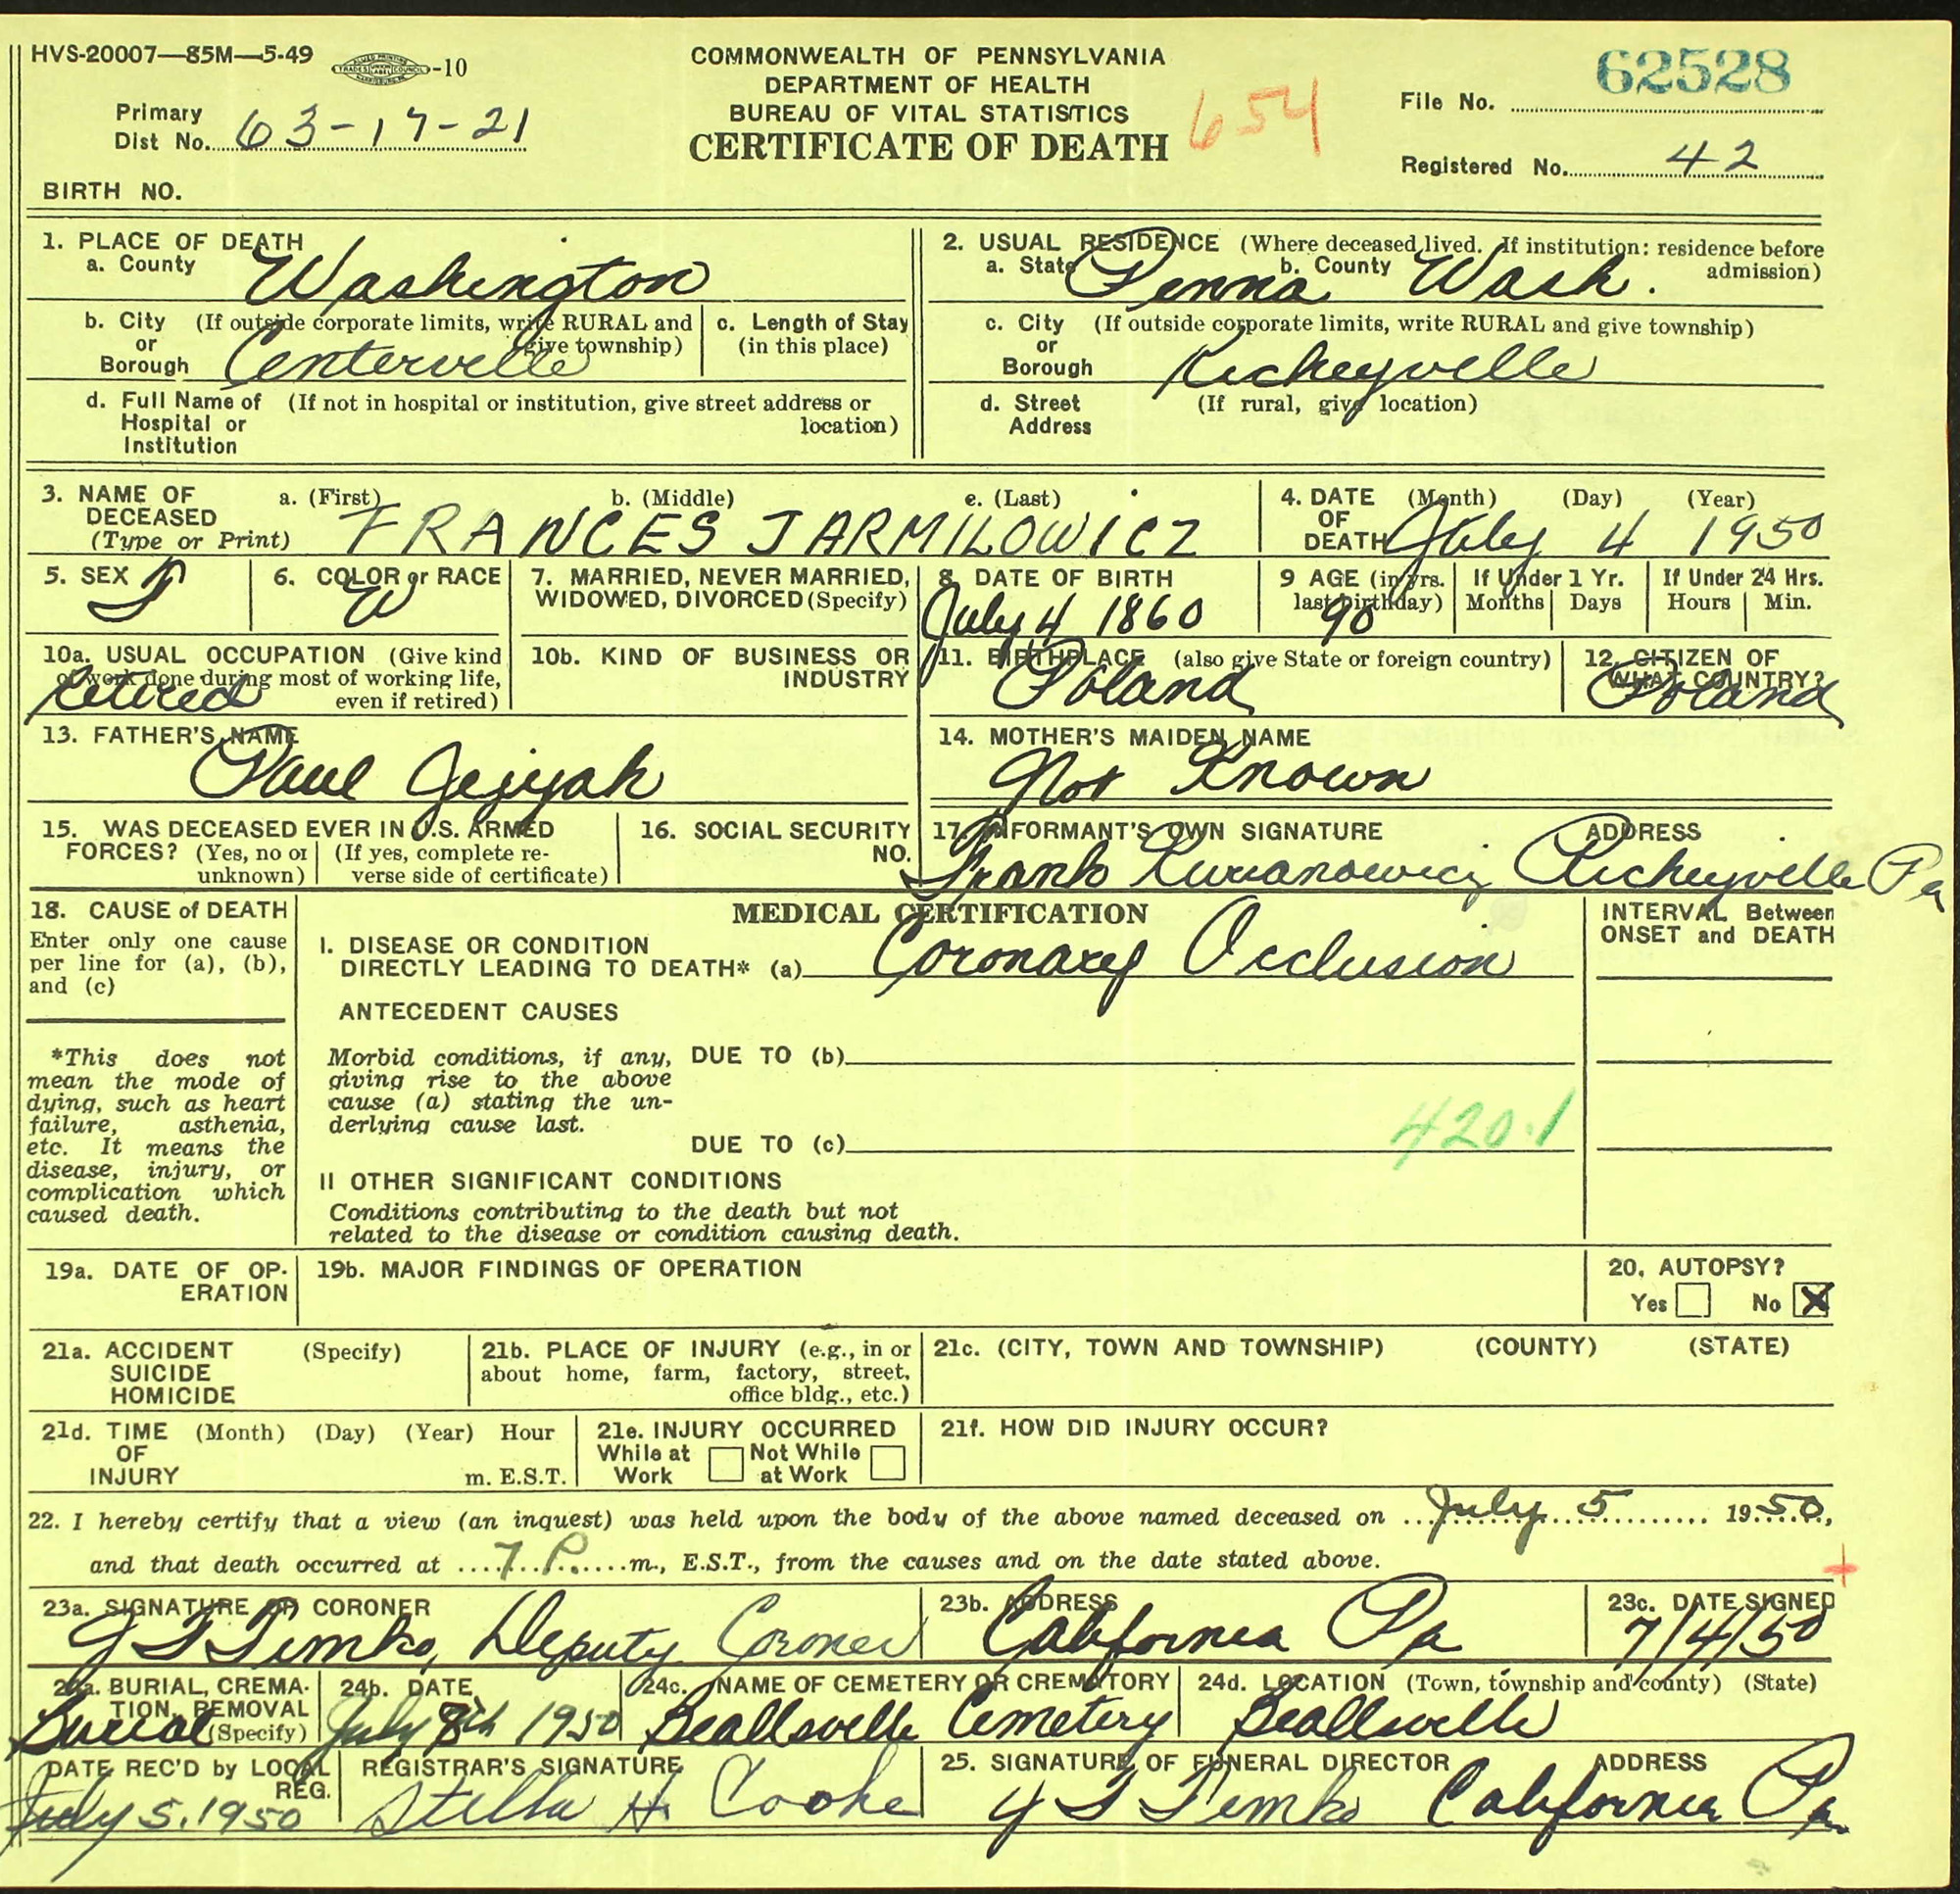 HVS-20007—85M—5-49 -10
COMMONWEALTH OF PENNSYLVANIA
DEPARTMENT OF HEALTH
BUREAU OF VITAL STATISTICS
CERTIFICATE OF DEATH
654
62528
File No.
Primary
Dist No. 63-17-21
Registered No. 42
BIRTH NO.
1. PLACE OF DEATH
a. County Washington
b. City (If outside corporate limits, write RURAL and
or give township)
Borough Centerville
c. Length of Stay
(in this place)
d. Full Name of (If not in hospital or institution, give street address or
Hospital or location)
Institution
2. USUAL RESIDENCE (Where deceased lived. If institution: residence before
a. State Penna b. County Wash. admission)
c. City (If outside corporate limits, write RURAL and give township)
or
Borough Richeyville
d. Street (If rural, give location)
Address
3. NAME OF a. (First) b. (Middle) c. (Last)
DECEASED
(Type or Print) FRANCES JARMILOWICZ
4. DATE (Month) (Day) (Year)
OF
DEATH July 4 1950
5. SEX F
6. COLOR or RACE
W
7. MARRIED, NEVER MARRIED,
WIDOWED, DIVORCED (Specify)
8. DATE OF BIRTH
July 4 1860
9 AGE (in yrs.
last birthday)
90
If Under 1 Yr.
Months Days
If Under 24 Hrs.
Hours Min.
10a. USUAL OCCUPATION (Give kind
of work done during most of working life,
even if retired)
Retired
10b. KIND OF BUSINESS OR
INDUSTRY
11. BIRTHPLACE (also give State or foreign country)
Poland
12. CITIZEN OF
WHAT COUNTRY?
Poland
13. FATHER'S NAME
Paul
14. MOTHER'S MAIDEN NAME
Not Known
15. WAS DECEASED EVER IN U.S. ARMED
FORCES? (Yes, no or (If yes, complete re-
unknown) verse side of certificate)
16. SOCIAL SECURITY
NO.
17. INFORMANT'S OWN SIGNATURE ADDRESS
Frank Richeyville Pa
18. CAUSE of DEATH
Enter only one cause
per line for (a), (b),
and (c)
*This does not
mean the mode of
dying, such as heart
failure, asthenia,
etc. It means the
disease, injury, or
complication which
caused death.
MEDICAL CERTIFICATION
I. DISEASE OR CONDITION
DIRECTLY LEADING TO DEATH* (a) Coronary Occlusion
ANTECEDENT CAUSES
Morbid conditions, if any, DUE TO (b)
giving rise to the above
cause (a) stating the un-
derlying cause last.
DUE TO (c)
420.1
II OTHER SIGNIFICANT CONDITIONS
Conditions contributing to the death but not
related to the disease or condition causing death.
INTERVAL Between
ONSET and DEATH
19a. DATE OF OP-
ERATION
19b. MAJOR FINDINGS OF OPERATION
20. AUTOPSY?
Yes No X
21a. ACCIDENT (Specify)
SUICIDE
HOMICIDE
21b. PLACE OF INJURY (e.g., in or
about home, farm, factory, street,
office bldg., etc.)
21c. (CITY, TOWN AND TOWNSHIP) (COUNTY) (STATE)
21d. TIME (Month) (Day) (Year) Hour
OF
INJURY m. E.S.T.
21e. INJURY OCCURRED
While at Not While
Work at Work
21f. HOW DID INJURY OCCUR?
22. I hereby certify that a view (an inquest) was held upon the body of the above named deceased on July 5 1950,
and that death occurred at 7 P. m., E.S.T., from the causes and on the date stated above.
23a. SIGNATURE OF CORONER
Temko, Deputy Coroner
23b. ADDRESS
California Pa
23c. DATE SIGNED
7/4/50
24a. BURIAL, CREMA-
TION, REMOVAL
Burial (Specify)
24b. DATE
July 8th 1950
24c. NAME OF CEMETERY OR CREMATORY
Beallsville Cemetery
24d. LOCATION (Town, township and county) (State)
Beallsville
DATE REC'D by LOCAL
REG.
July 5. 1950
REGISTRAR'S SIGNATURE
Stella H. Cooke
25. SIGNATURE OF FUNERAL DIRECTOR ADDRESS
Temko California Pa.